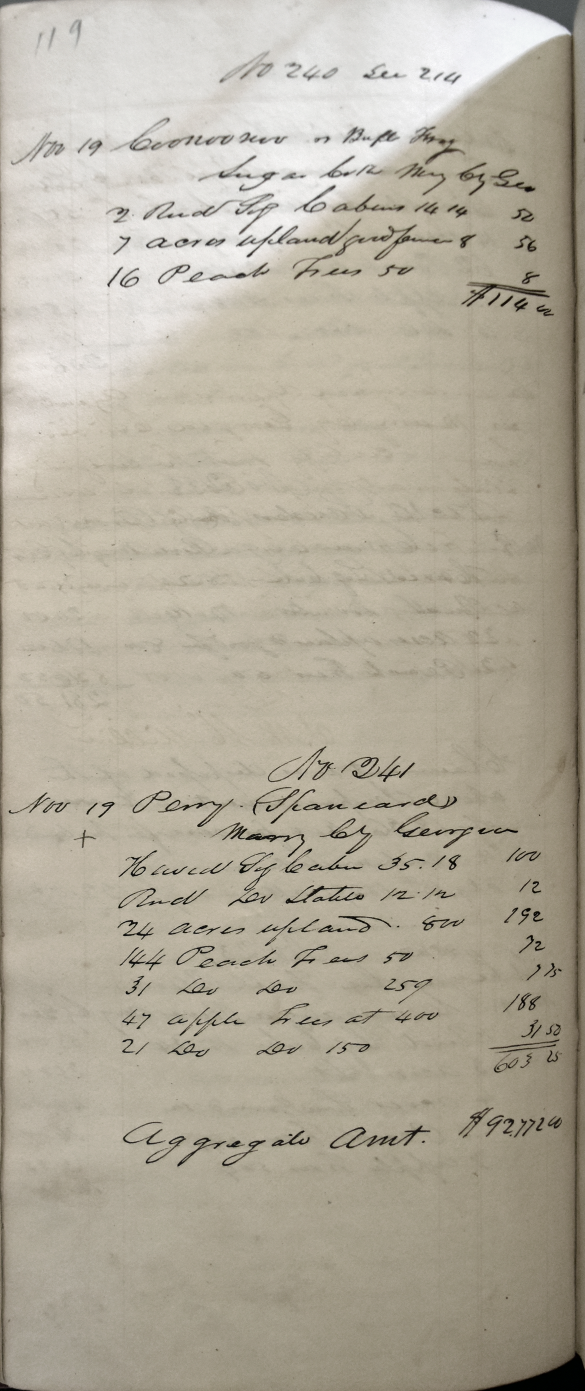 119
No 240 See 214
Nov 19 Coonoosuo or Bull Frog
Sugar Mry by Geo
2 Rnd Log Cabins 14 14 52
7 acres upland good fence 8 56
16 Peach Trees 50 8
$114 00
No 241
Nov 19 Perry (Spaneard)
+ Marry by Georgia
Hewed Log Cabin 35.18 100
Rnd Do Stable 12.12 12
24 acres upland. 800 192
144 Peach Trees 50 72
31 Do Do 25 7 75
47 apple Trees at 400 188
21 Do Do 150 31 50
603 25
Aggregate Amt. $92772 00